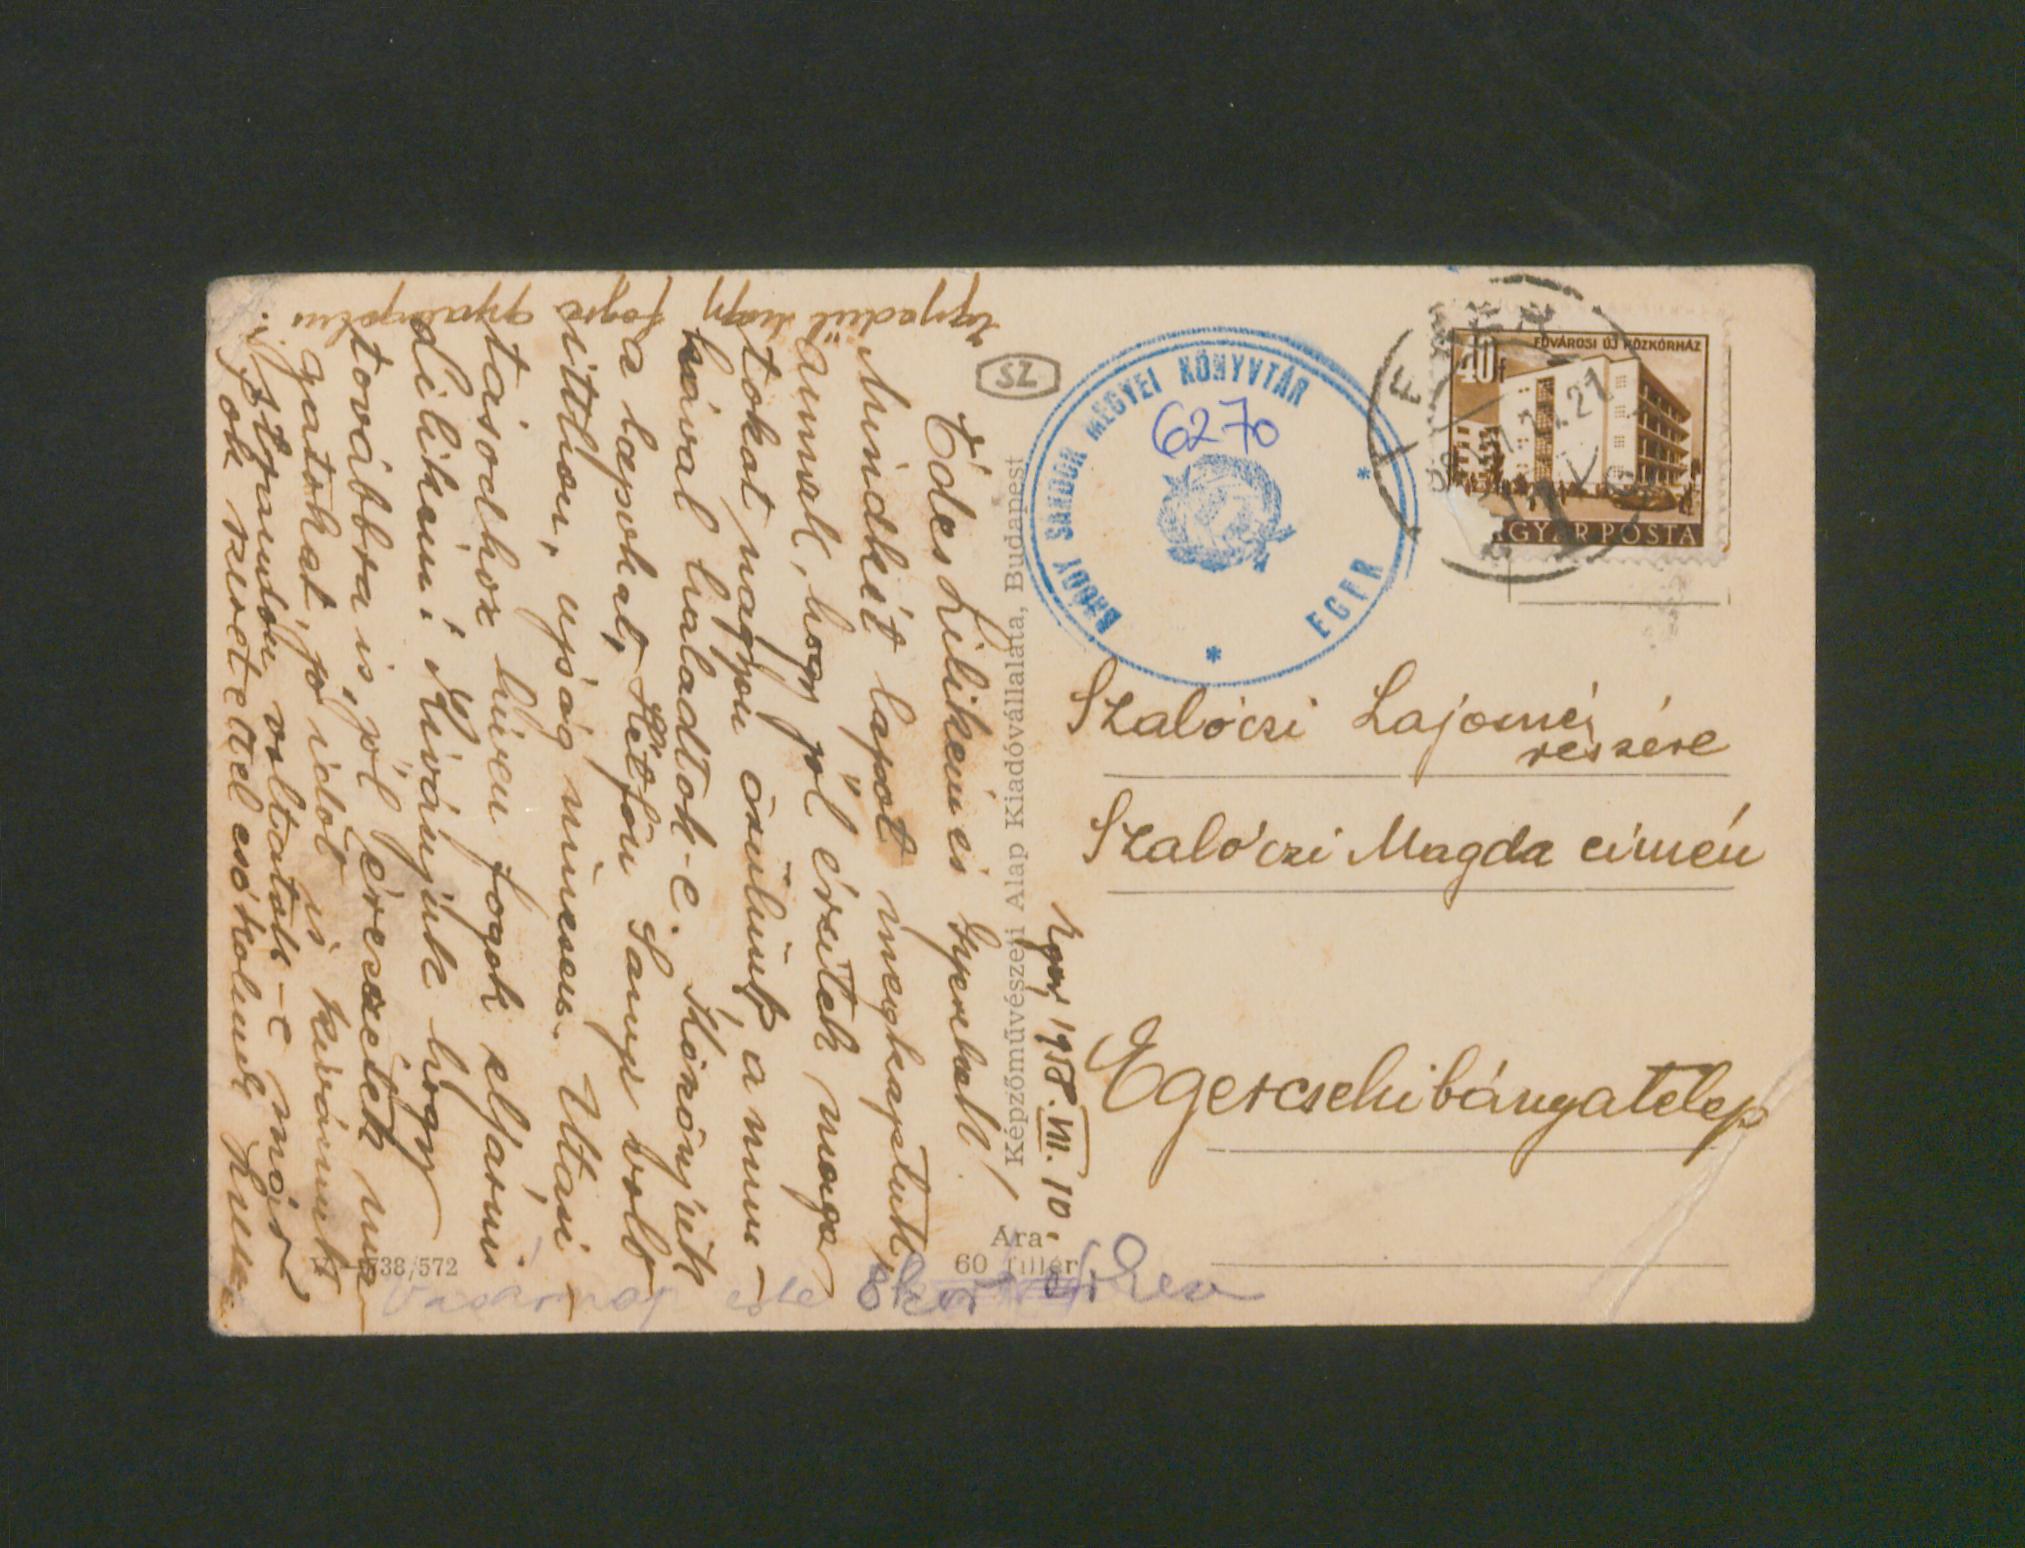 Eger, 1958. VII. 10.
Édes Lilikém és Gyerekek!
Mindkét lapot megkaptuk,
annak, hogy jól érzitek maga-
tokat nagyon örülünk, a mun-
kával haladtok-e. Köszönjük
a lapokat, Hétfőn Sanyi volt
itthon, ujság nincsen. Utasi-
tásodhoz híven fogok eljárni
Lilikém! Kívánjuk hogy
továbbra is jól érezzétek ma-
gatokat, jó időt is kívánunk
Strandon voltatok-e már
sok szeretettel csókolunk
Egyedül hagy fogis gyalogolni
Vasárnap este
SZ
Képzőművészeti Alap Kiadóvállalata, Budapest
Ára
60 fillér
738/572
BRÓDY SÁNDOR MEGYEI KÖNYVTÁR
* EGER *
6270
EGER
FŐVÁROSI ÚJ KÖZKÓRHÁZ
40f
GYAR POSTA
Szalóczi Lajosné
részére
Szalóczi Magda címén
Egercsehibányatelep